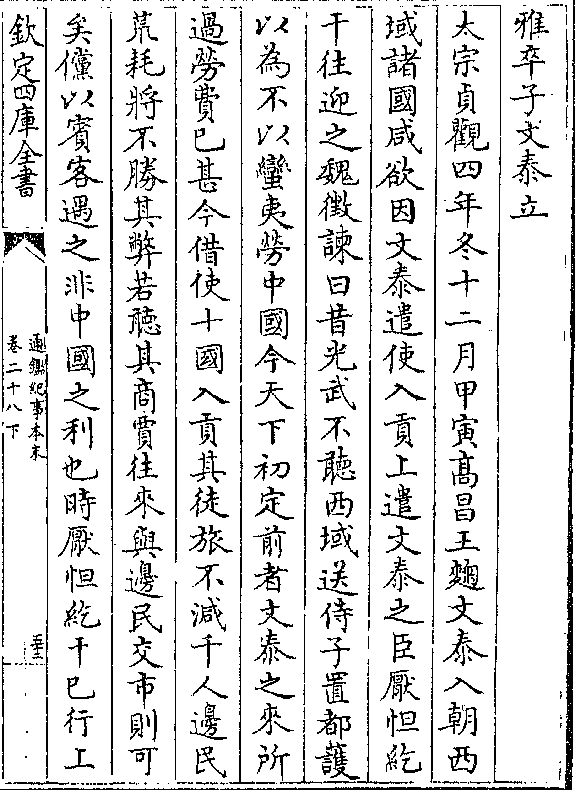 雅卒子文泰立
太宗貞觀四年冬十二月甲寅髙昌王麴文泰入朝西
域諸國咸欲因文泰遣使入貢上遣文泰之臣厭怛紇
干往迎之魏徵諫曰昔光武不聽西域送侍子置都護
以為不以蠻夷勞中國今天下初定前者文泰之來所
過勞費已甚今借使十國入貢其徒旅不減千人邊民
荒耗將不勝其弊若聽其商賈往來與邊民交市則可
矣儻以賓客遇之非中國之利也時厭怛紇干已行上
欽定四庫全書
通鑑紀事本末
卷二十八下